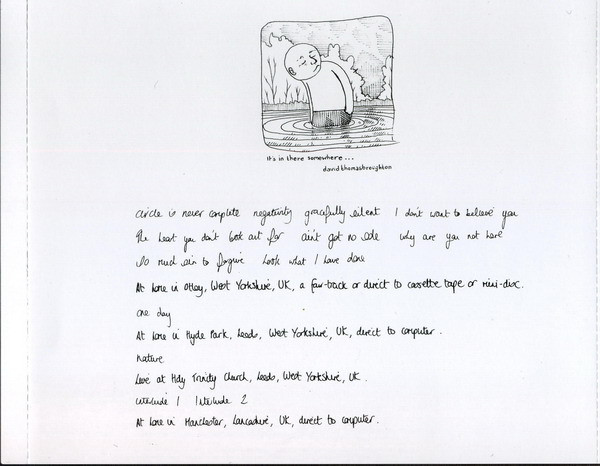 it's in there somewhere...
davidthomasbroughton
circle is never complete negativity gracefully silent I don't want to believe you
the heart you don't look out for ain't got no sole why are you not here
so much sin to forgive look what I have done
At home in Otley, West Yorkshire, UK, a four-track or direct to cassette tape or mini-disc.
one day
At home in Hyde Park, Leeds, West Yorkshire, UK, direct to computer.
nature
Live at Holy Trinity Church, Leeds, West Yorkshire, UK.
interlude 1 interlude 2
At home in Manchester, Lancashire, UK, direct to computer.